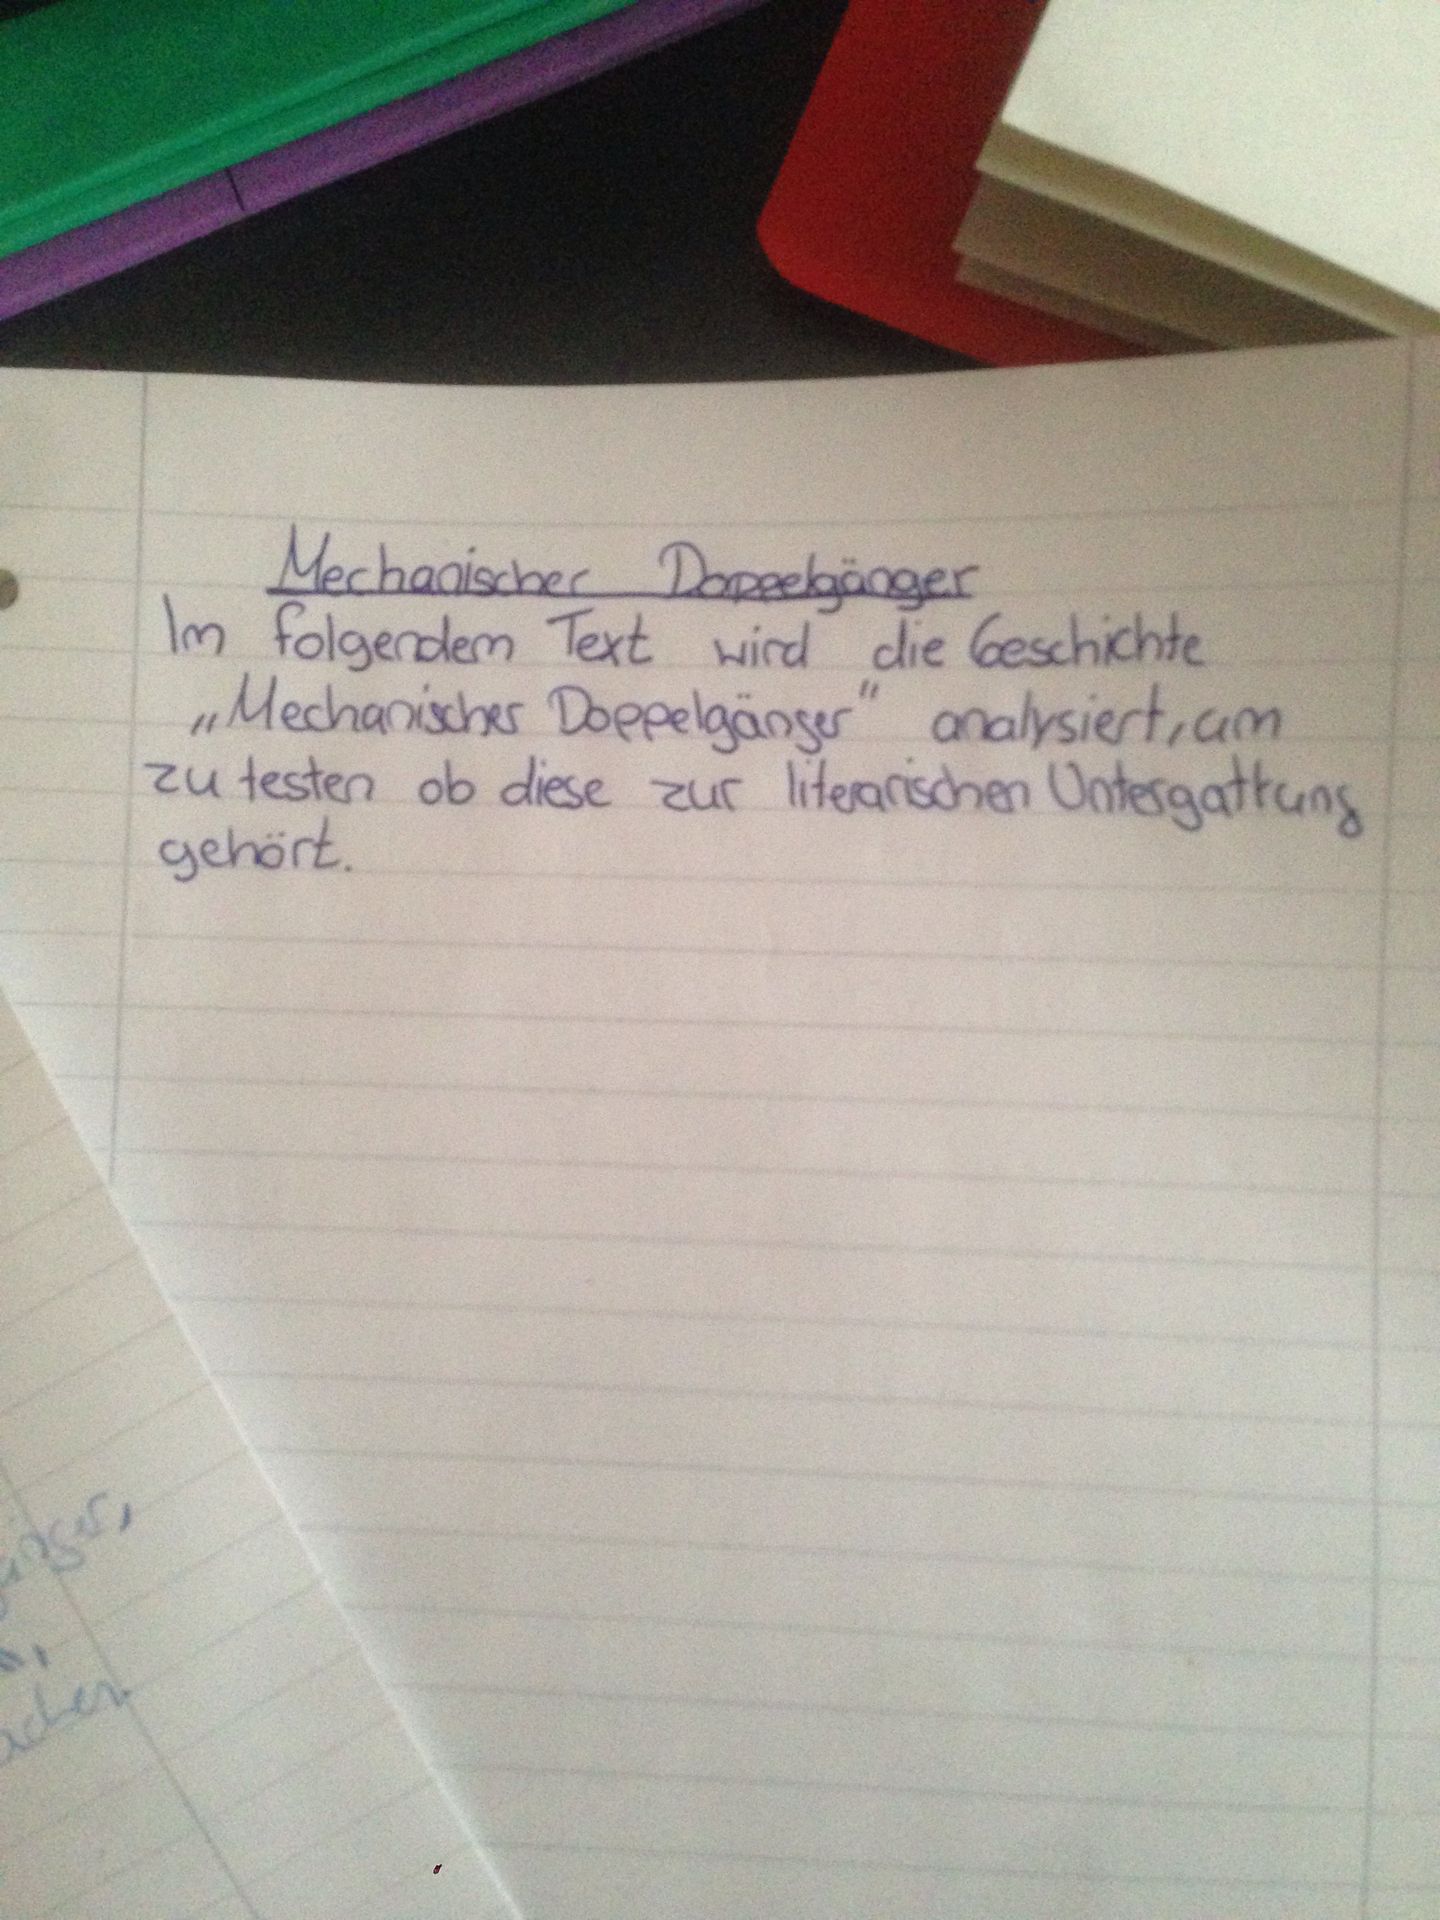 Mechanischer Doppelgänger
Im folgendem Text wird die Geschichte
„Mechanischer Doppelgänger" analysiert, um
zu testen ob diese zur literarischen Untergattung
gehört.